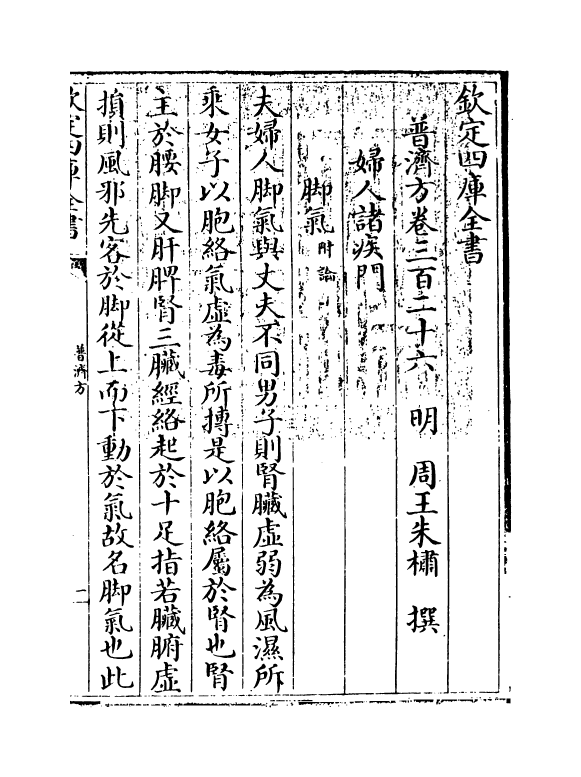 欽定四庫全書
普濟方卷三百二十六 明 周王朱橚 撰
婦人諸疾門
脚氣附論
夫婦人脚氣與丈夫不同男子則腎臟虛弱為風濕所
乘女子以胞絡氣虛為毒所搏是以胞絡屬於腎也腎
主於腰脚又肝脾腎三臟經絡起於十足指若臟腑虛
損則風邪先客於脚從上而下動於氣故名脚氣也此
欽定四庫全書
普濟方